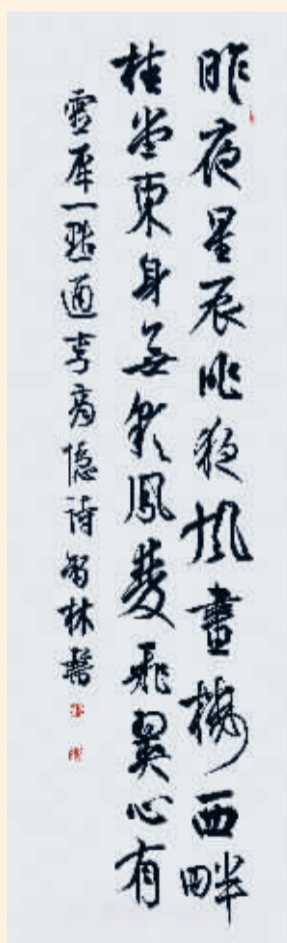 昨夜星辰昨夜風畫樓西畔
桂堂東身無彩鳳雙飛翼心有
靈犀一點通李商隱詩智林書